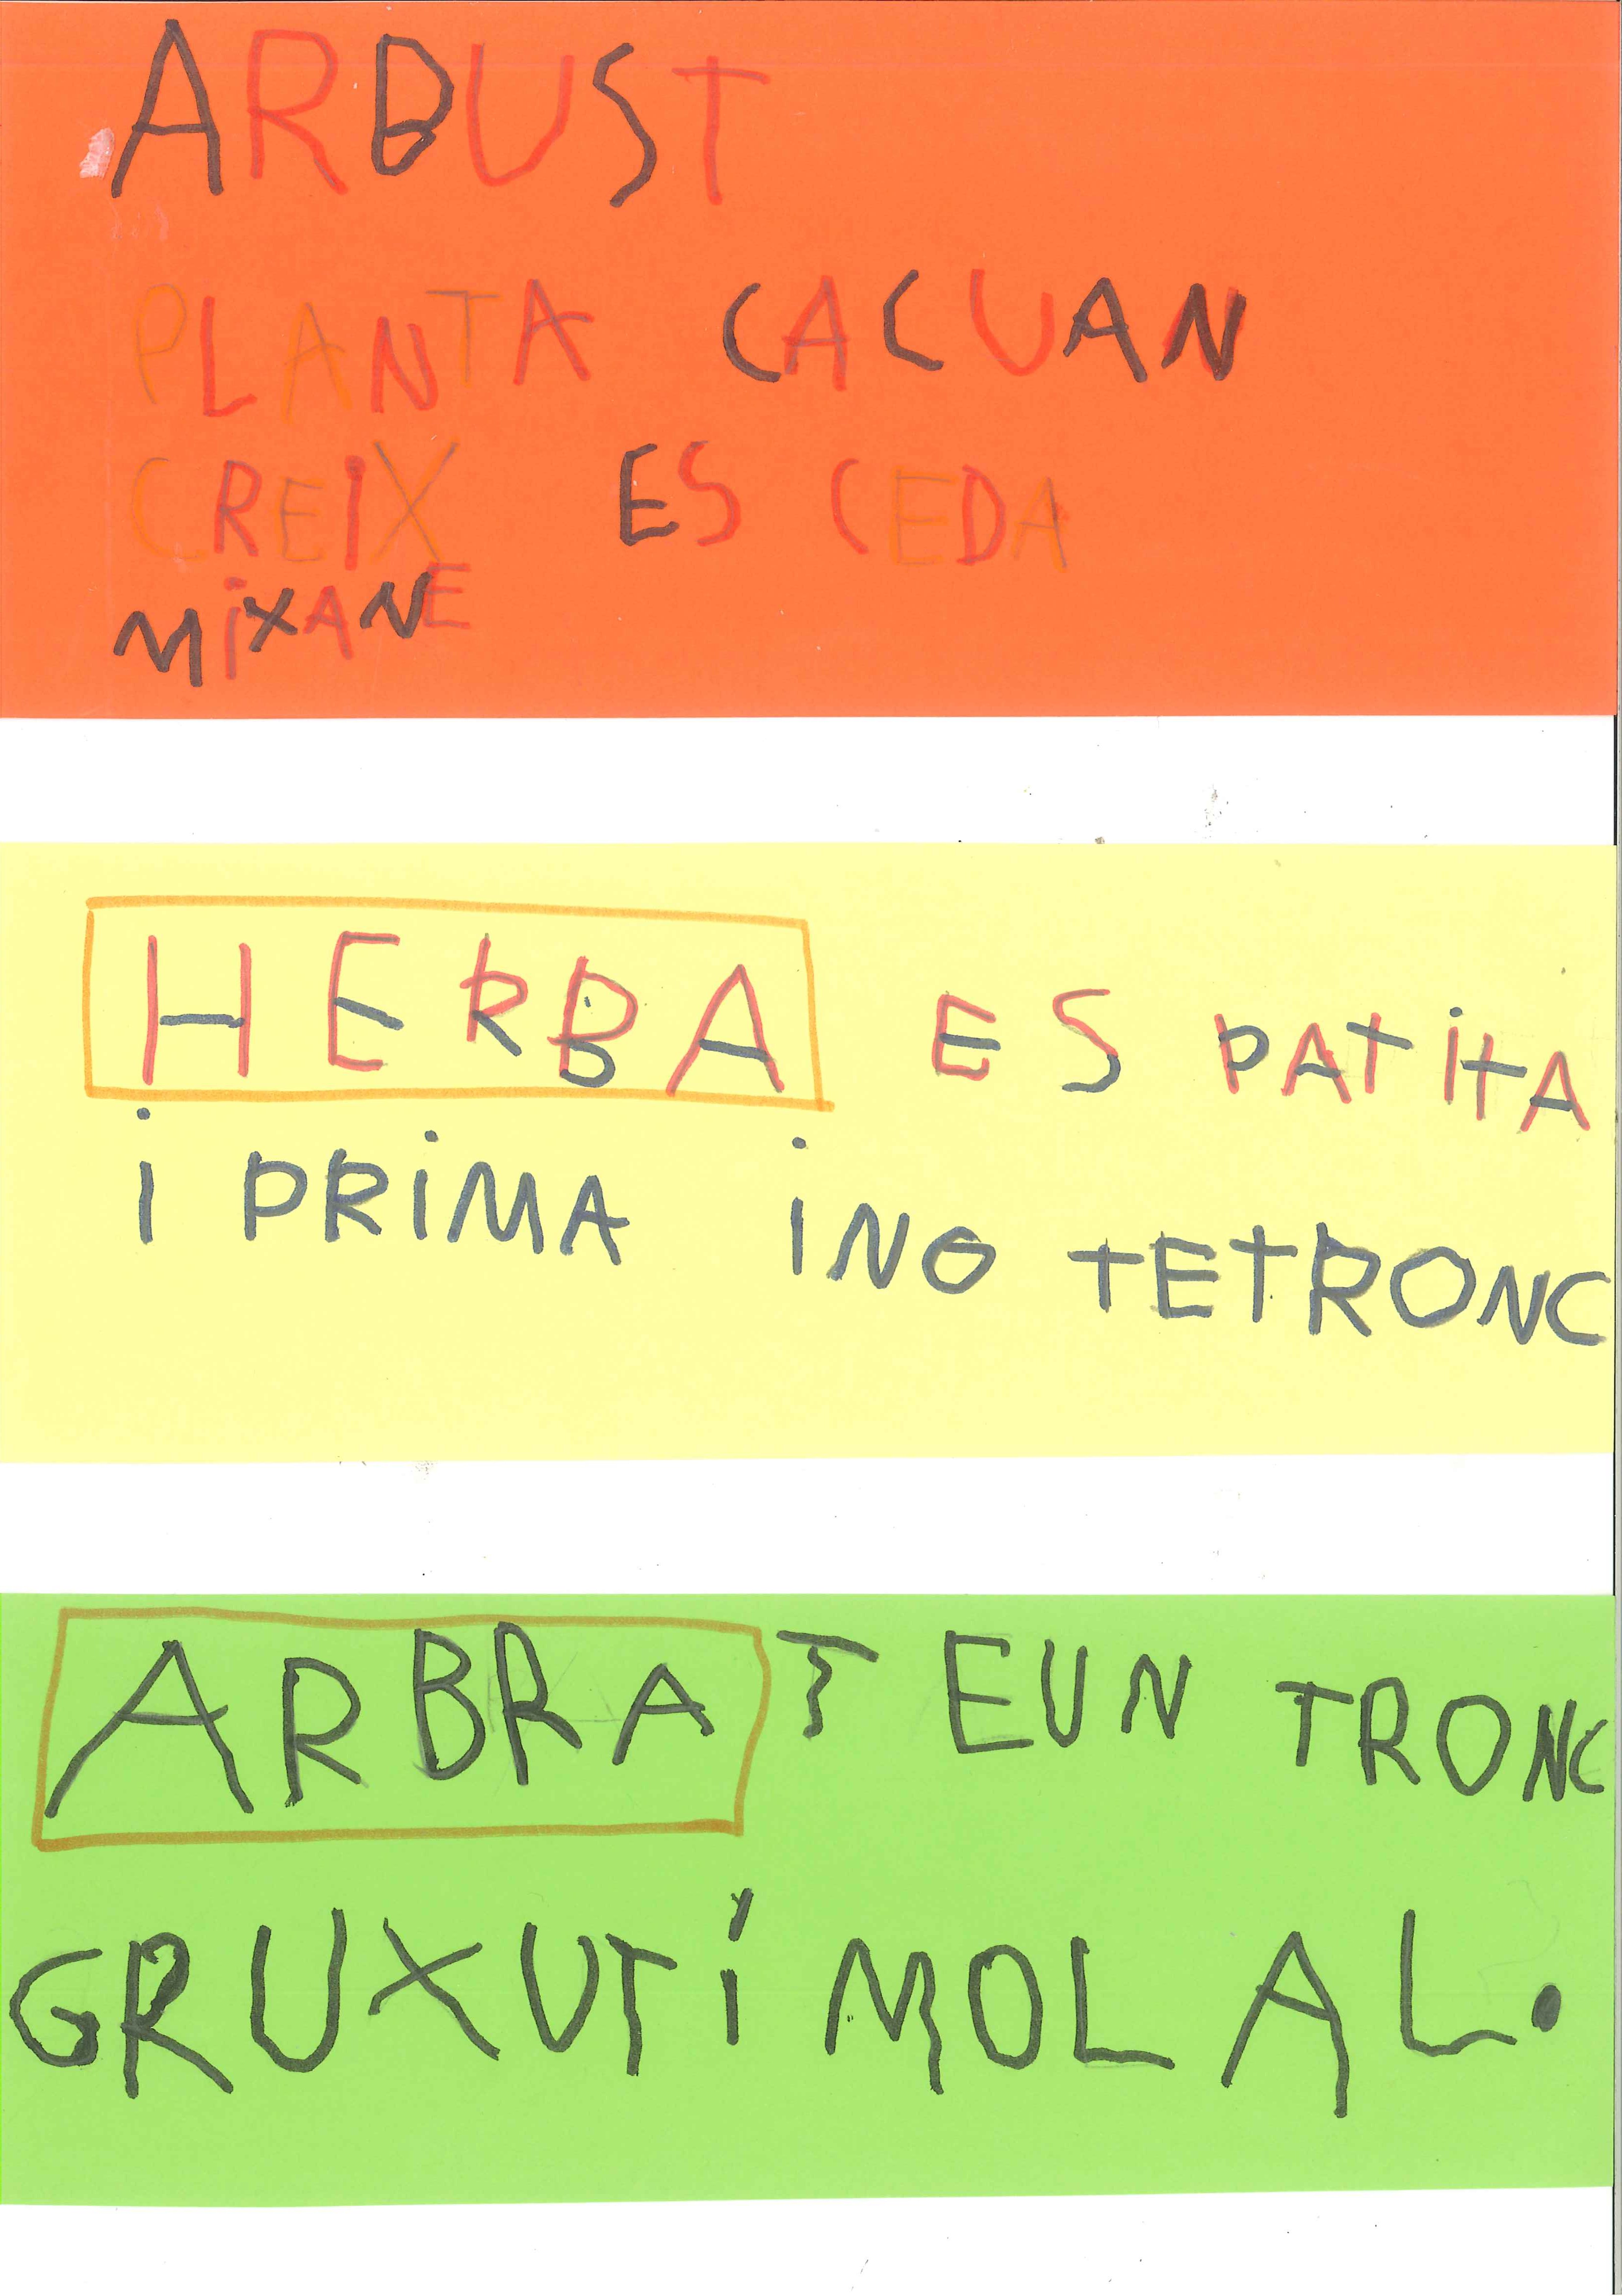 ARBUST
PLANTA CACUAN
CREIX ES CEDA
MiXANE
HERBA ES PATiTA
i PRiMA iNO TETRONC
ARBRA T EUN TRONC
GRUXUTi MOL AL.